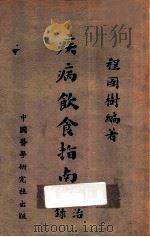 程国樹編著
疾病飲食指南
治
錄
中國醫學研究社出版